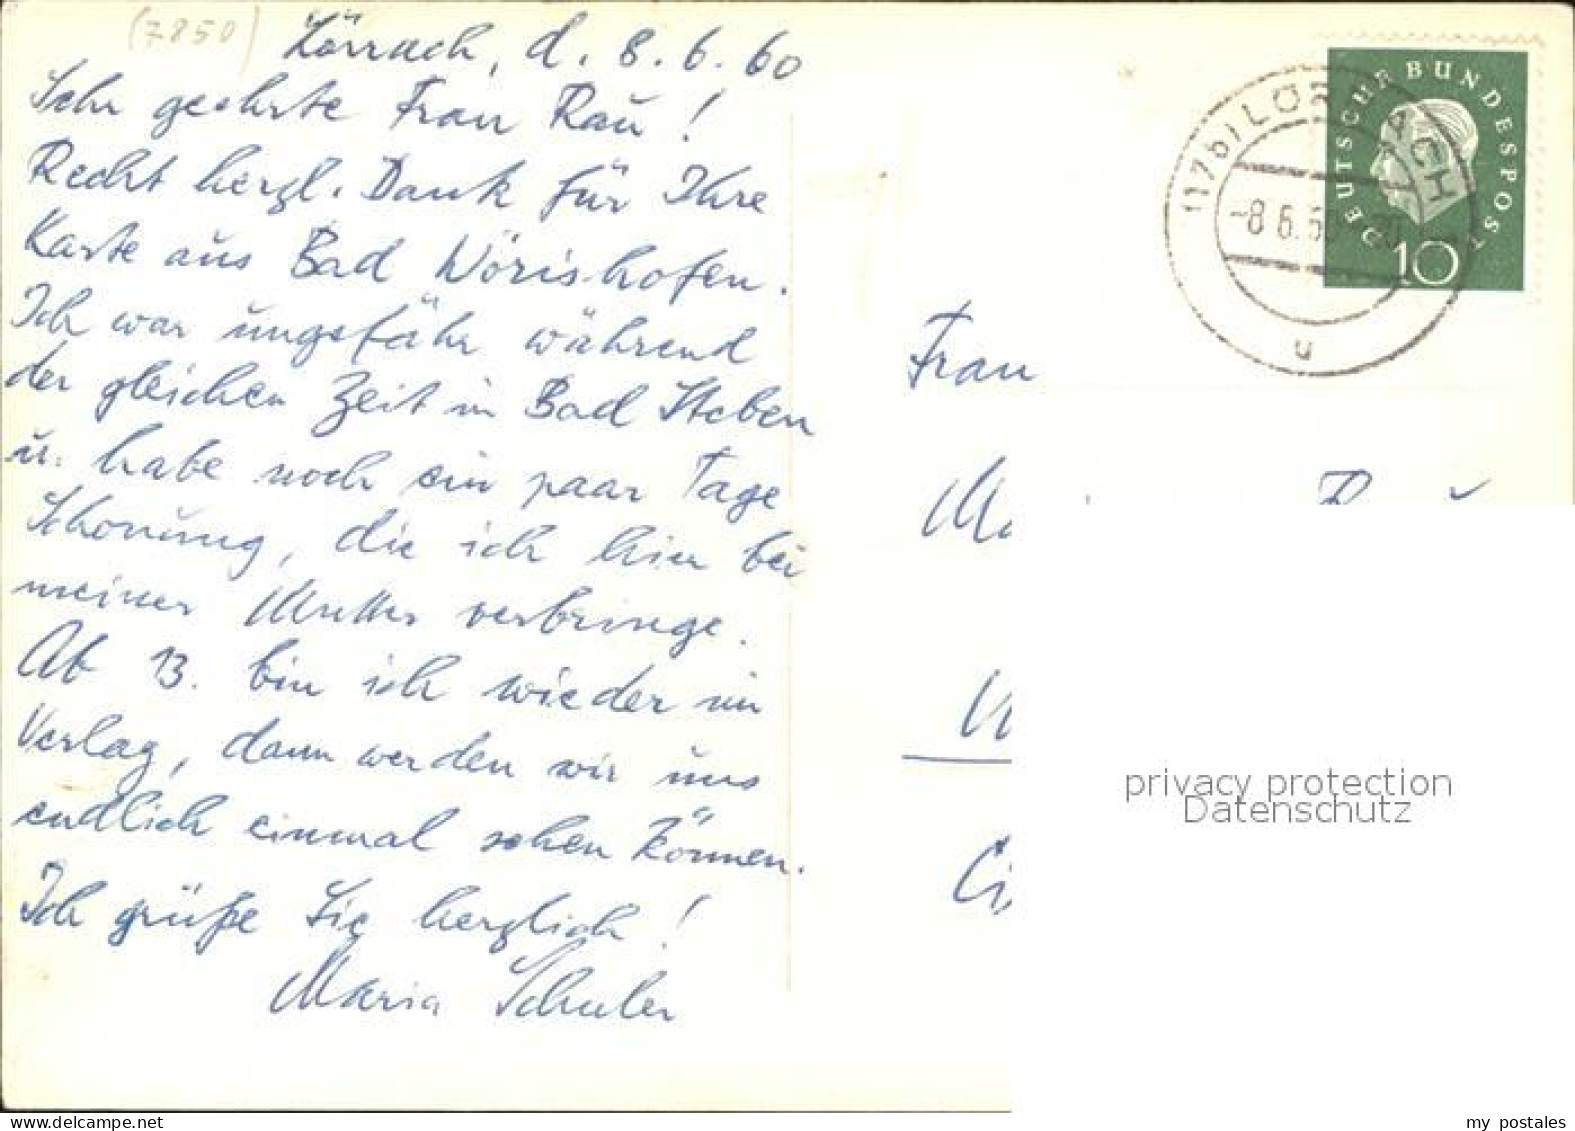 (7850)
Lörrach, d. 8.6.60
Sehr geehrte Frau Rau!
Recht herzl. Dank für Ihre
Karte aus Bad Wörishofen.
Ich war ungefähr während
der gleichen Zeit in Bad Steben
u. habe noch ein paar Tage
Schonung, die ich hier bei
meiner Mutter verbringe.
Ab 13. bin ich wieder im
Verlag, dann werden wir uns
endlich einmal sehen können.
Ich grüße Sie herzlich!
Maria Schuler
DEUTSCHE BUNDESPOST
10
(17b) LÖRRACH
-8.6.60
u
Frau
privacy protection
Datenschutz
my postales
www.delcampe.net